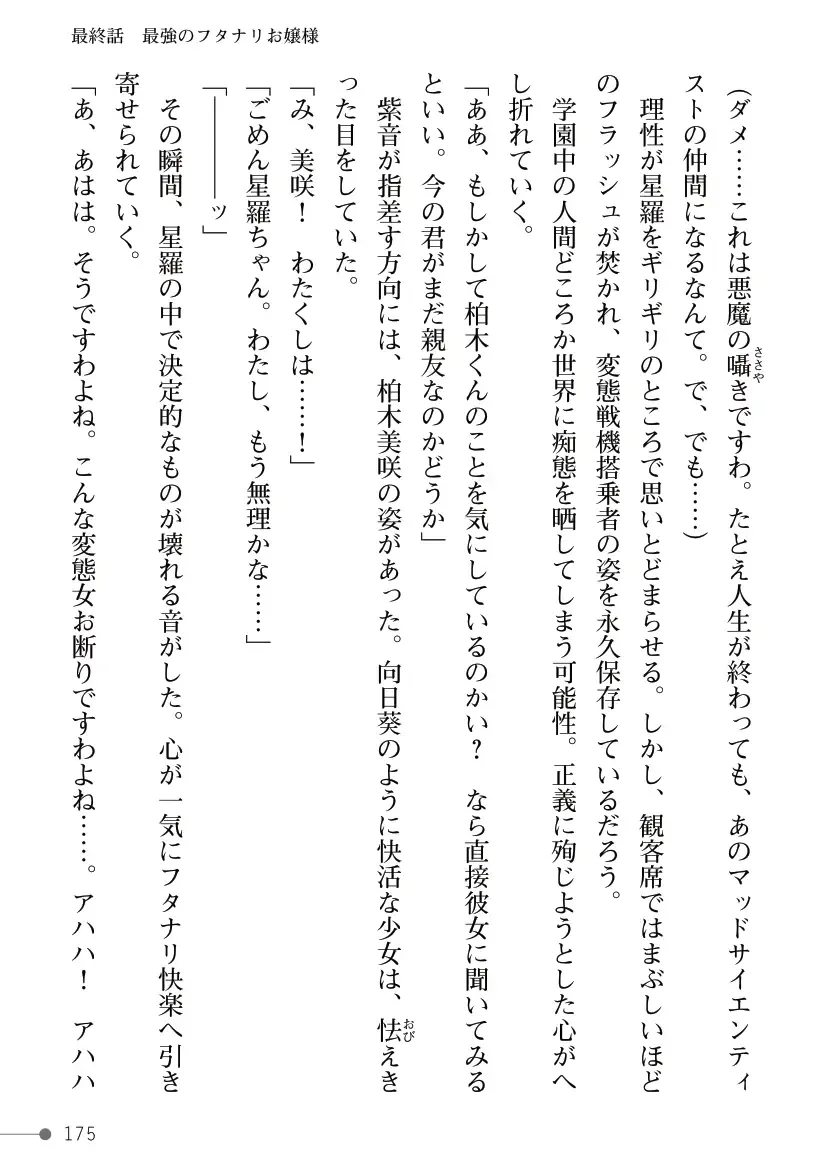 最終話　最強のフタナリお嬢様
(ダメ……これは悪魔の囁きですわ。たとえ人生が終わっても、あのマッドサイエンティ
ささや
ストの仲間になるなんて。で、でも……)
　理性が星羅をギリギリのところで思いとどまらせる。しかし、観客席ではまぶしいほど
のフラッシュが焚かれ、変態戦機搭乗者の姿を永久保存しているだろう。
　学園中の人間どころか世界に痴態を晒してしまう可能性。正義に殉じようとした心がへ
し折れていく。
「ああ、もしかして柏木くんのことを気にしているのかい？　なら直接彼女に聞いてみる
といい。今の君がまだ親友なのかどうか」
　紫音が指差す方向には、柏木美咲の姿があった。向日葵のように快活な少女は、怯えき
おび
った目をしていた。
「み、美咲！　わたくしは……！」
「ごめん星羅ちゃん。わたし、もう無理かな……」
「―――――ッ」
　その瞬間、星羅の中で決定的なものが壊れる音がした。心が一気にフタナリ快楽へ引き
寄せられていく。
「あ、あはは。そうですわよね。こんな変態女お断りですわよね……。アハハ！　アハハ
175